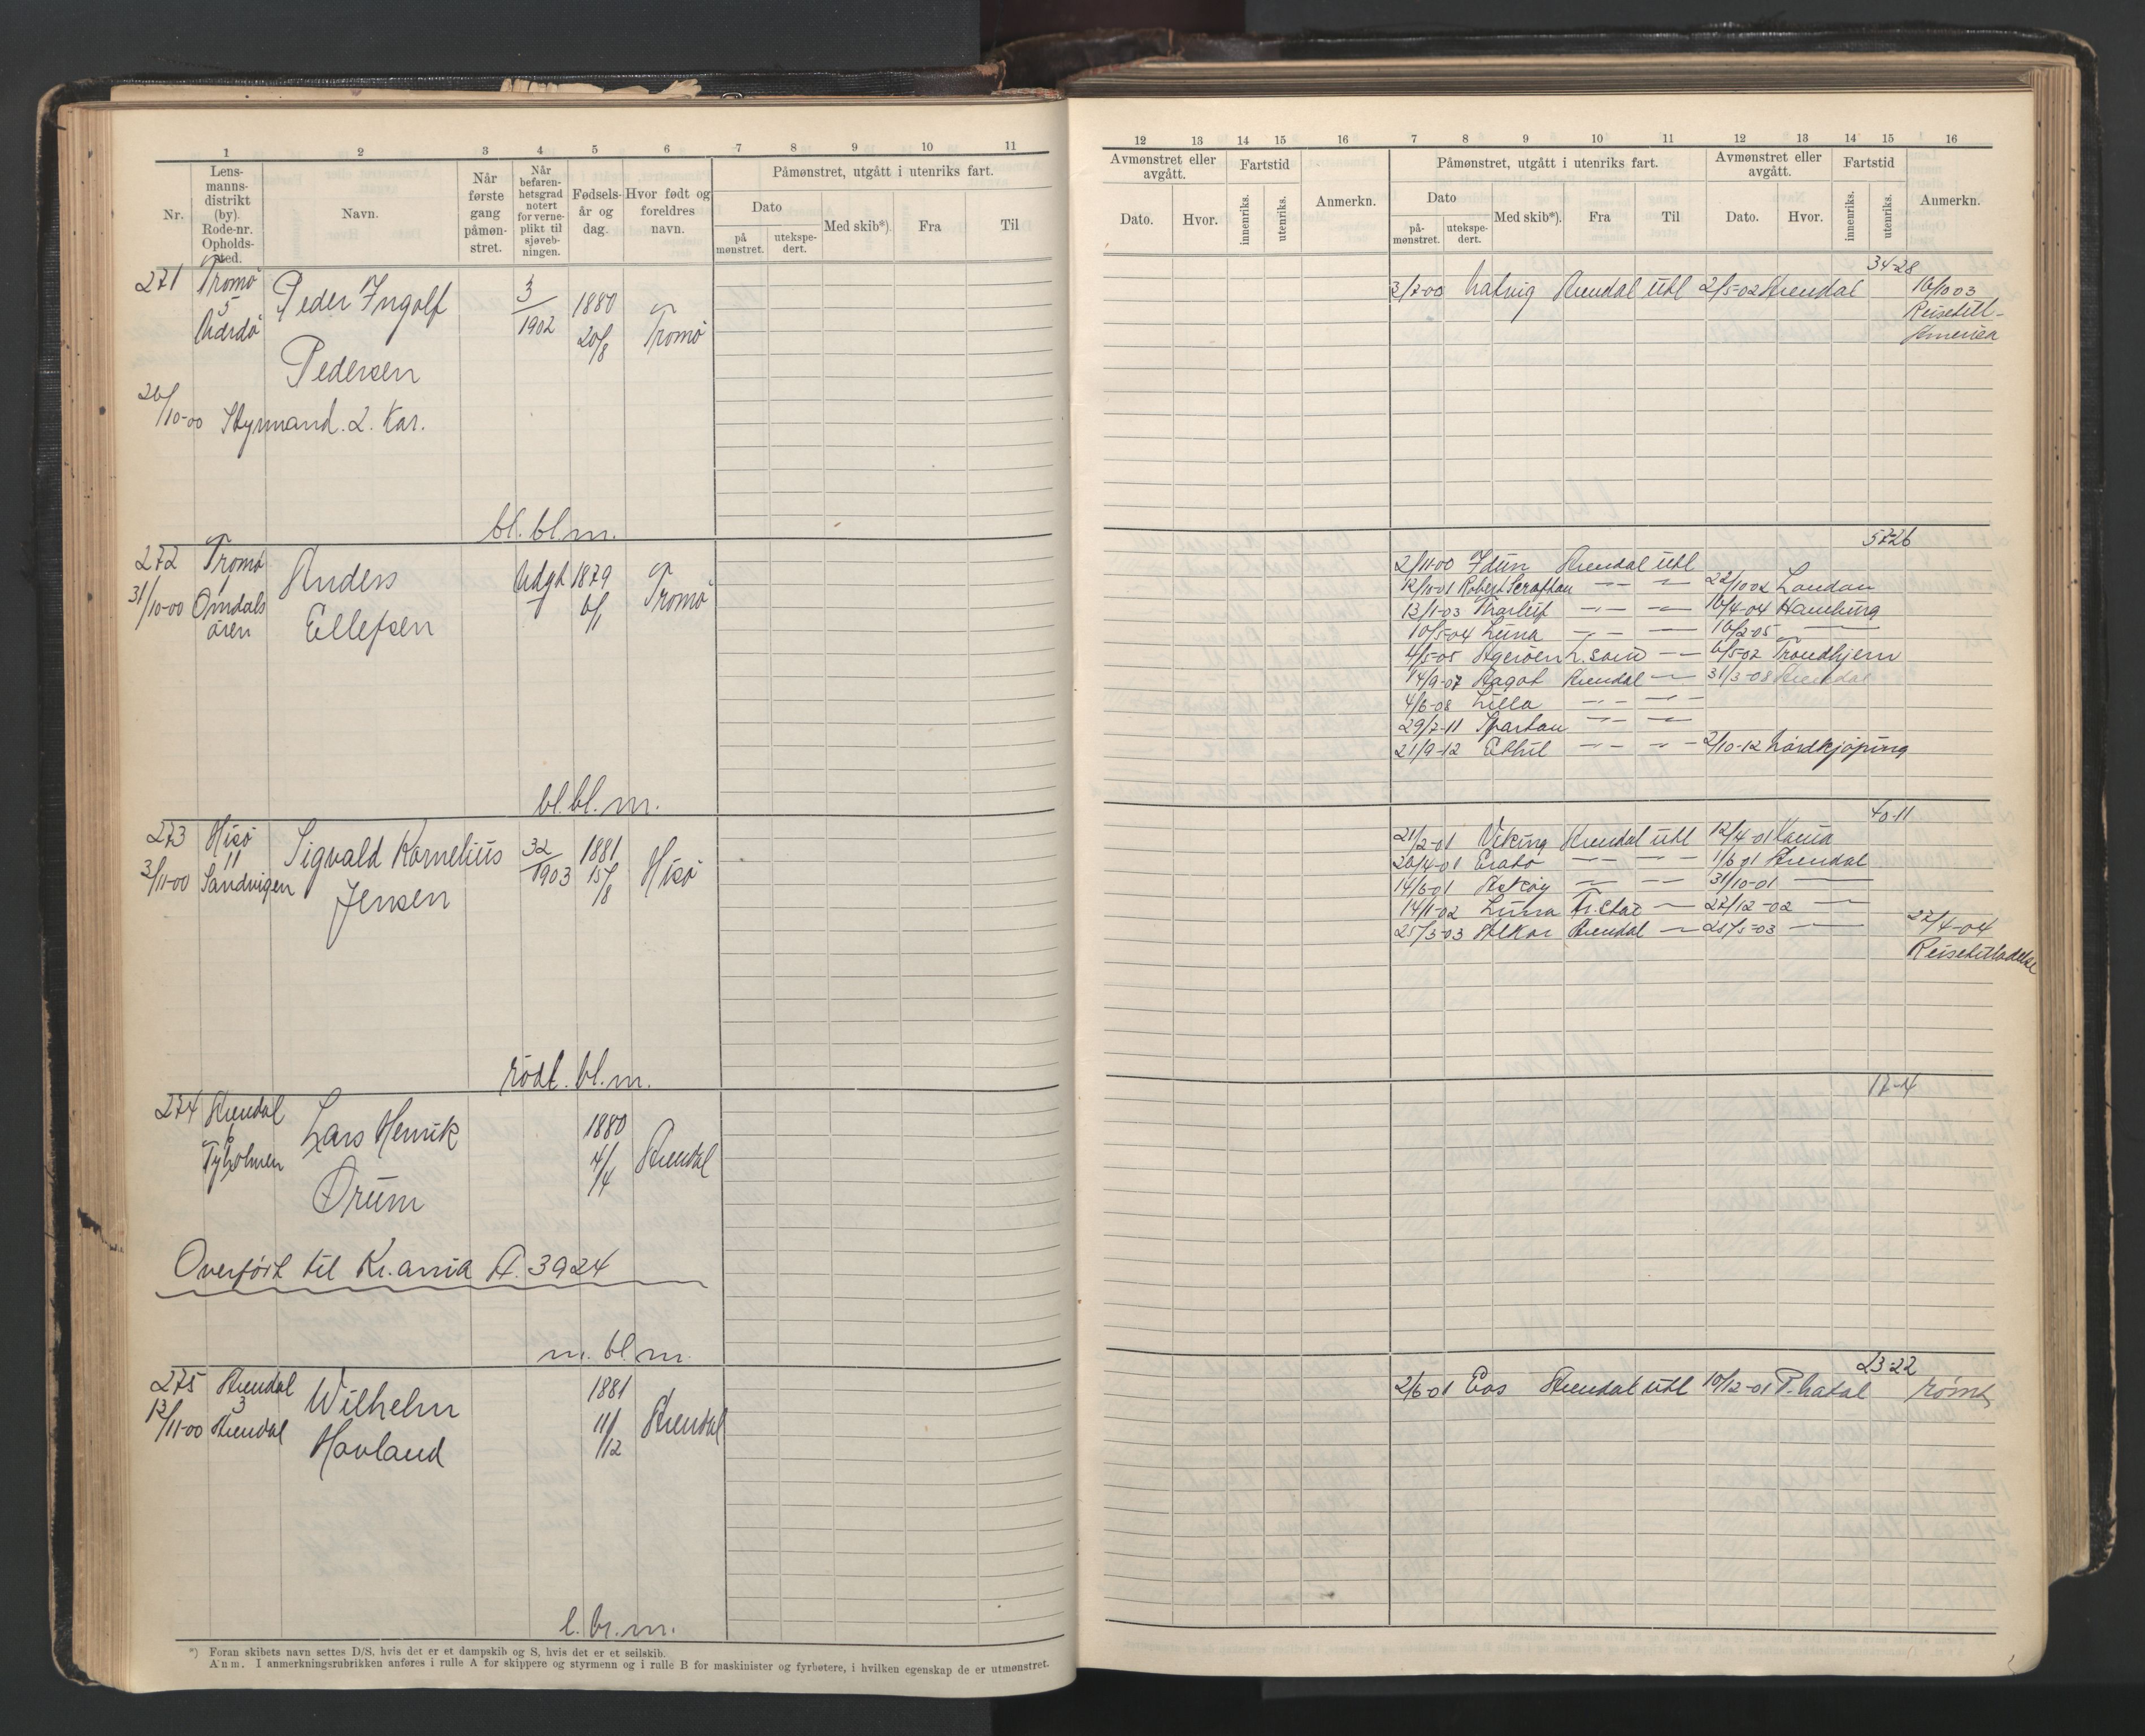 1 2 3 4 5 6 7 8 9 10 11
Nr.
Lens-
manns-
distrikt
(by).
Rode-nr.
Opholds-
sted.
Navn.
Når
første
gang
påmøn-
stret.
Når
befaren-
hetsgrad
notert
for verne-
plikt til
sjøveb-
ningen.
Fødsels-
år og
dag.
Hvor født og
foreldres
navn.
Påmønstret, utgått i utenriks fart.
Dato
på
mønstret.
utekspe-
dert.
Med skib*).
Fra
Til
271 Tromø
5
Peder Ingolf
Pedersen
3/1902
1880
20/8
Tromø
26/10-00 Styrmand. 2. Kar.
bl. bl. m.
272 Tromø
1
31/10-00 Omdals
øren
Anders
Ellefsen
Udgt 1879
6/1
Tromø
bl. bl. m.
273 Hisø
11
3/11-00 Sandvigen
Sigvald Kornelius
Jensen
32/1903
1881
15/8
Hisø
rødt. bl. m.
274 Arendal
6
Tyholmen
Lars Henrik
Ørum
1880
4/4
Arendal
Overført til Kr.ania A. 3924
m. bl. m.
275 Arendal
3
13/11-00 Arendal
Wilhelm
Havland
1881
11/12
Arendal
l. br. m.
*) Foran skibets navn settes D/S, hvis det er et dampskib og S, hvis det er et seilskib.
Anm. I anmerkningsrubrikken anføres i rulle A for skippere og styrmenn og i rulle B for maskinister og fyrbøtere, i hvilken egenskap de er utmønstret.
12 13 14 15 16 7 8 9 10 11 12 13 14 15 16
Avmønstret eller
avgått.
Dato.
Hvor.
Fartstid
innenriks.
utenriks.
Anmerkn.
Påmønstret, utgått i utenriks fart.
Dato
på-
mønstret.
utekspe-
dert.
Med skib*).
Fra
Til
Avmønstret eller
avgått.
Dato.
Hvor.
Fartstid
innenriks.
utenriks.
Anmerkn.
34-28
3/7-00 Natvig Arendal utl 2/5-02 Arendal 16/10 03
Reisetill-
Amerika
57-26
2/11-00 Idun Arendal utl
12/10-01 Robert Scrafton -"- -"- 22/10 02 London
13/11-03 Thorleif -"- -"- 16/4-04 Hamburg
10/5-04 Luna -"- -"- 16/2-05 —
4/5-05 Agerøen L.sand -"- 6/5-02 Trondhjem
14/9-07 Aagot Arendal -"- 31/3-08 Arendal
4/6-08 Lilla -"- -"-
29/7-11 Spartan -"- -"-
21/9-12 Ethil -"- -"- 2/10-12 Nordkjøping
40-11
21/2-01 Viking Arendal utl 12/4-01
20/4-01 Erato -"- -"- 1/6 01 Arendal
14/6-01 Askøy -"- -"- 31/10-01 —
14/11-02 Luna Fr.stad -"- 27/12-02 —
25/3-03 Alkor Arendal -"- 25/5-03 — 27/4-04
Reisetilladelse
17-4
23-22
2/6-01 Eos Arendal utl 10/12-01 P. Natal rømt